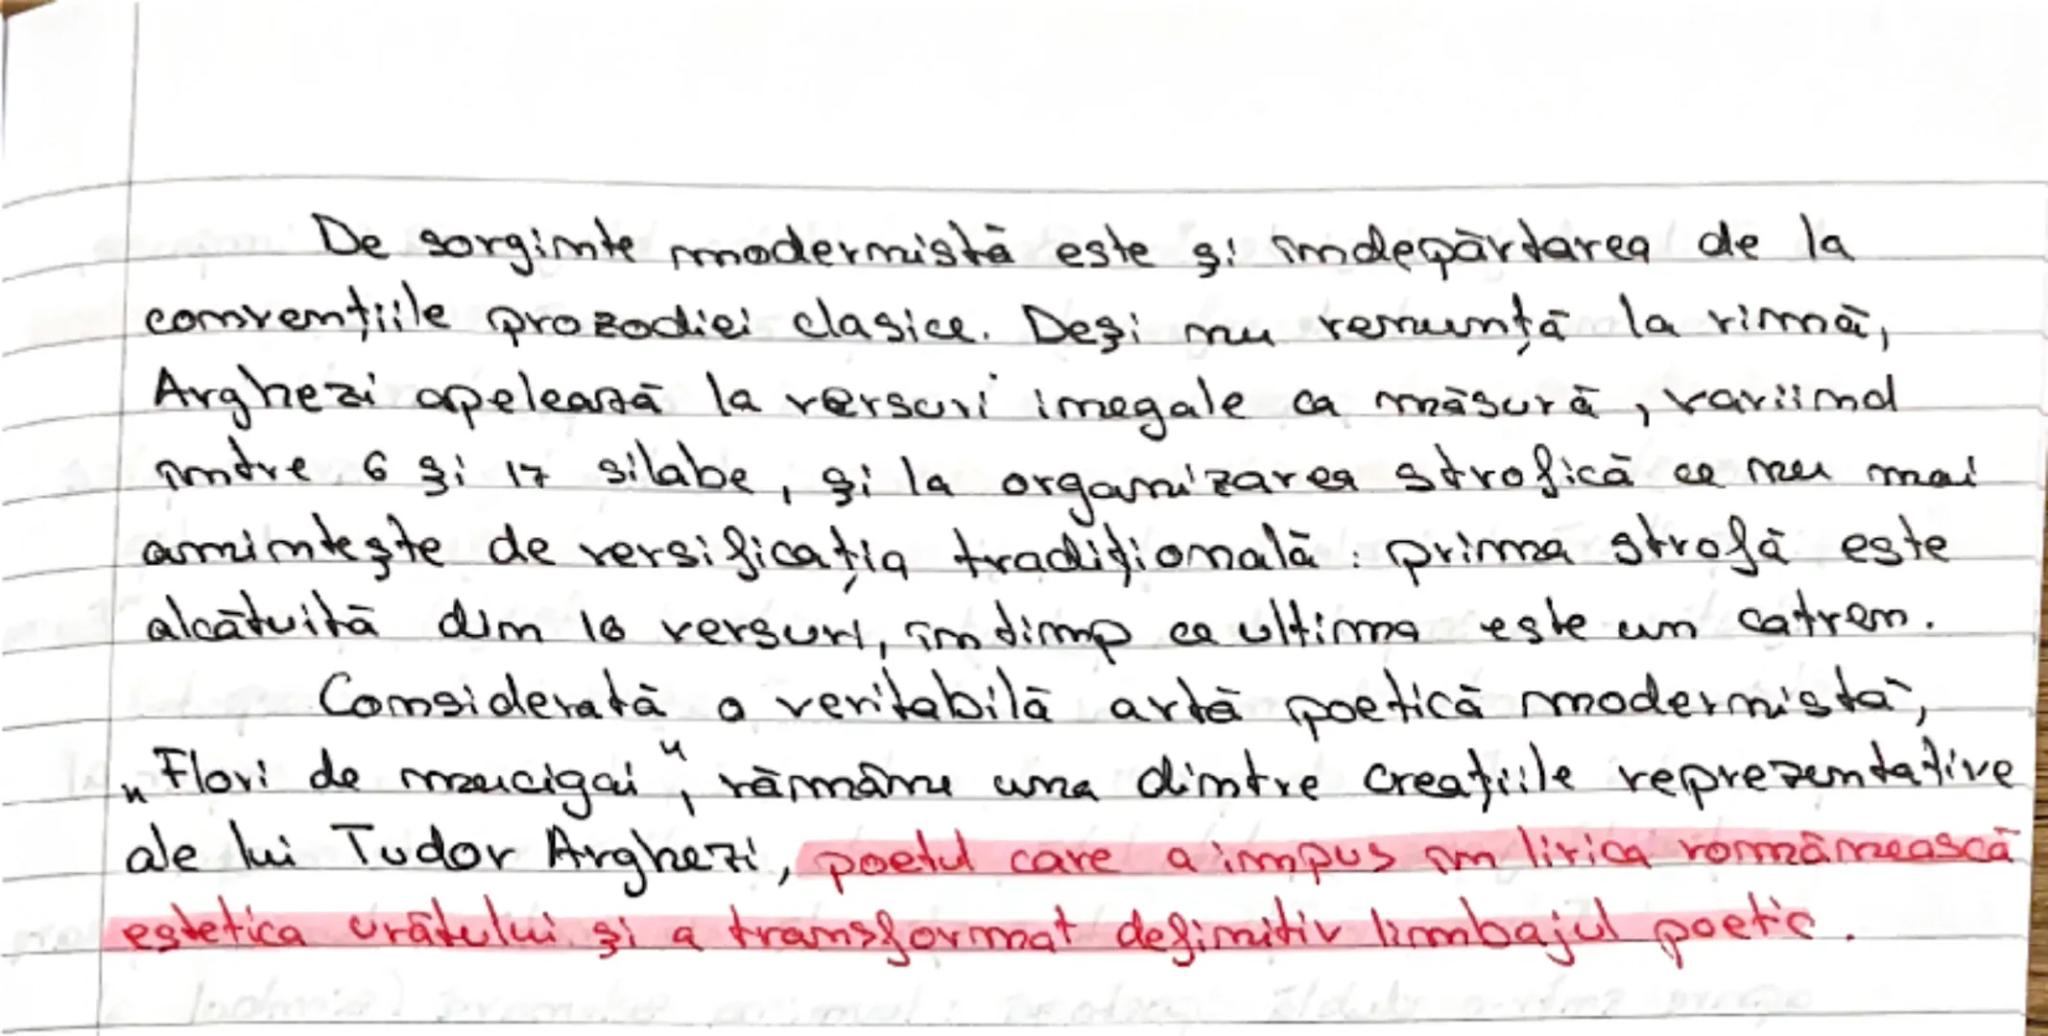 De sorginte modernistă este și îndepărtarea de la
convențiile prozodiei clasice. Deși nu renunță la rimă,
Arghezi apelează la versuri inegale ca măsură, variind
între 6 și 17 silabe, și la organizarea strofică ce nu mai
amintește de versificația tradițională: prima strofă este
alcătuită din 16 versuri, în timp ce ultima este un catren.
Considerată o veritabilă artă poetică modernistă,
„Flori de mucigai", rămâne una dintre creațiile reprezentative
ale lui Tudor Arghezi, poetul care a impus în lirica românească
estetica urâtului și a transformat definitiv limbajul poetic.